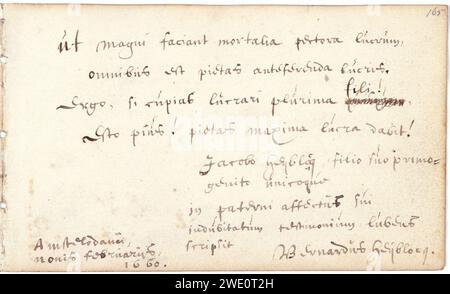 165
ut magni faciant mortalia pectora lucrum,
omnibus est pietas anteferenda lucris.
Ergo, si cupias lucrari plurima fili!
Esto pius! pietas maxima lucra dabit!
Jacobo Heyblocq, filio suo primo-
genito unicoque
in paterni affectus sui
indubitatum testimonium lubens
scripsit
Bernardus Heyblocq.
Amstelodami,
nonis februariis,
1660.
alamy
Image ID: 2WE0T2H
www.alamy.com